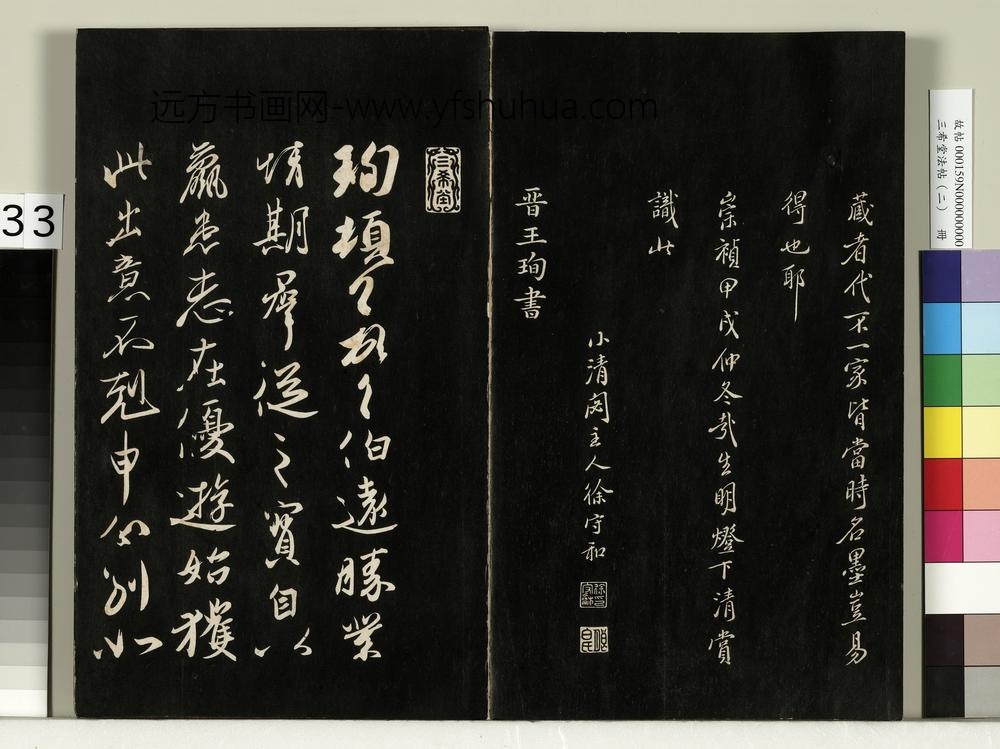 藏者代不一家皆當時名墨豈易
得也耶
崇禎甲戌仲冬哉生明燈下清賞
識此
小清閟主人徐守和
晋王珣書
三希堂
珣頓首頓首伯遠勝業
情期群從之寶自以
羸患志在優遊始獲
此出意不剋申分別如
远方书画网-www.yfshuhua.com
故帖 000159N000000000
三希堂法帖（二） 冊
33